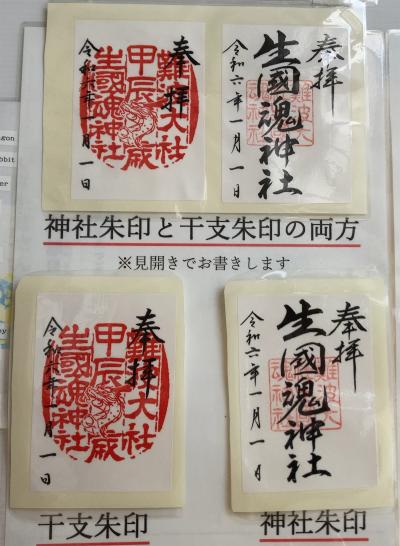 奉拝
難波大社
甲辰歳
生國魂神社
令和六年一月一日
奉拝
生國魂神社
難波大社
令和六年一月一日
神社朱印と干支朱印の両方
※見開きでお書きします
奉拝
難波大社
甲辰歳
生國魂神社
令和六年一月一日
干支朱印
奉拝
生國魂神社
令和六年一月一日
神社朱印